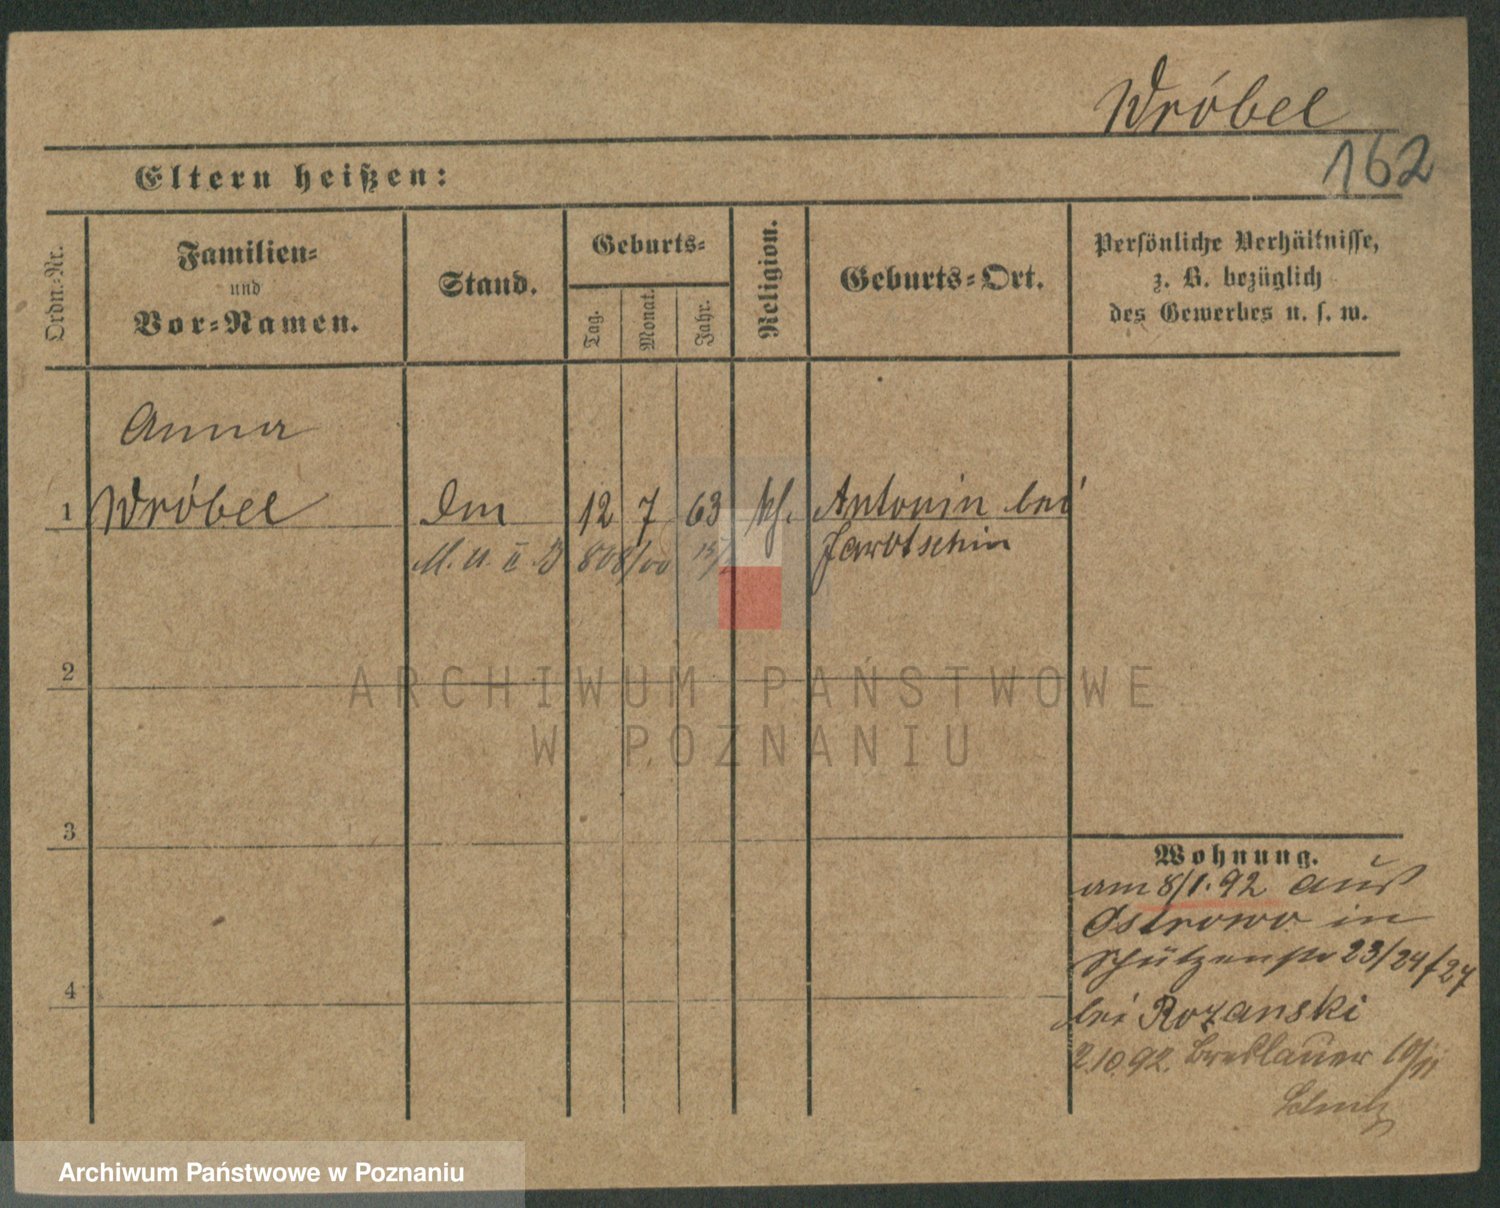 Wróbel
162
Eltern heißen:
Ordn.-Nr.
Familien-
und
Vor-Namen.
Stand.
Geburts-
Tag.
Monat.
Jahr.
Religion.
Geburts-Ort.
Persönliche Verhältnisse,
z. B. bezüglich
des Gewerbes u. s. w.
Anna
1 Wróbel 12 7 63 kh. Antonin bei
M. U. II. 808/00 Jarotschin
2
3
4
Wohnung.
am 8/1.92 aus
Ostrowo in
Schützenstr 23/24/27
bei Rozanski
2.10.92. Breslauer
Schulz
ARCHIWUM PAŃSTWOWE
W POZNANIU
Archiwum Państwowe w Poznaniu